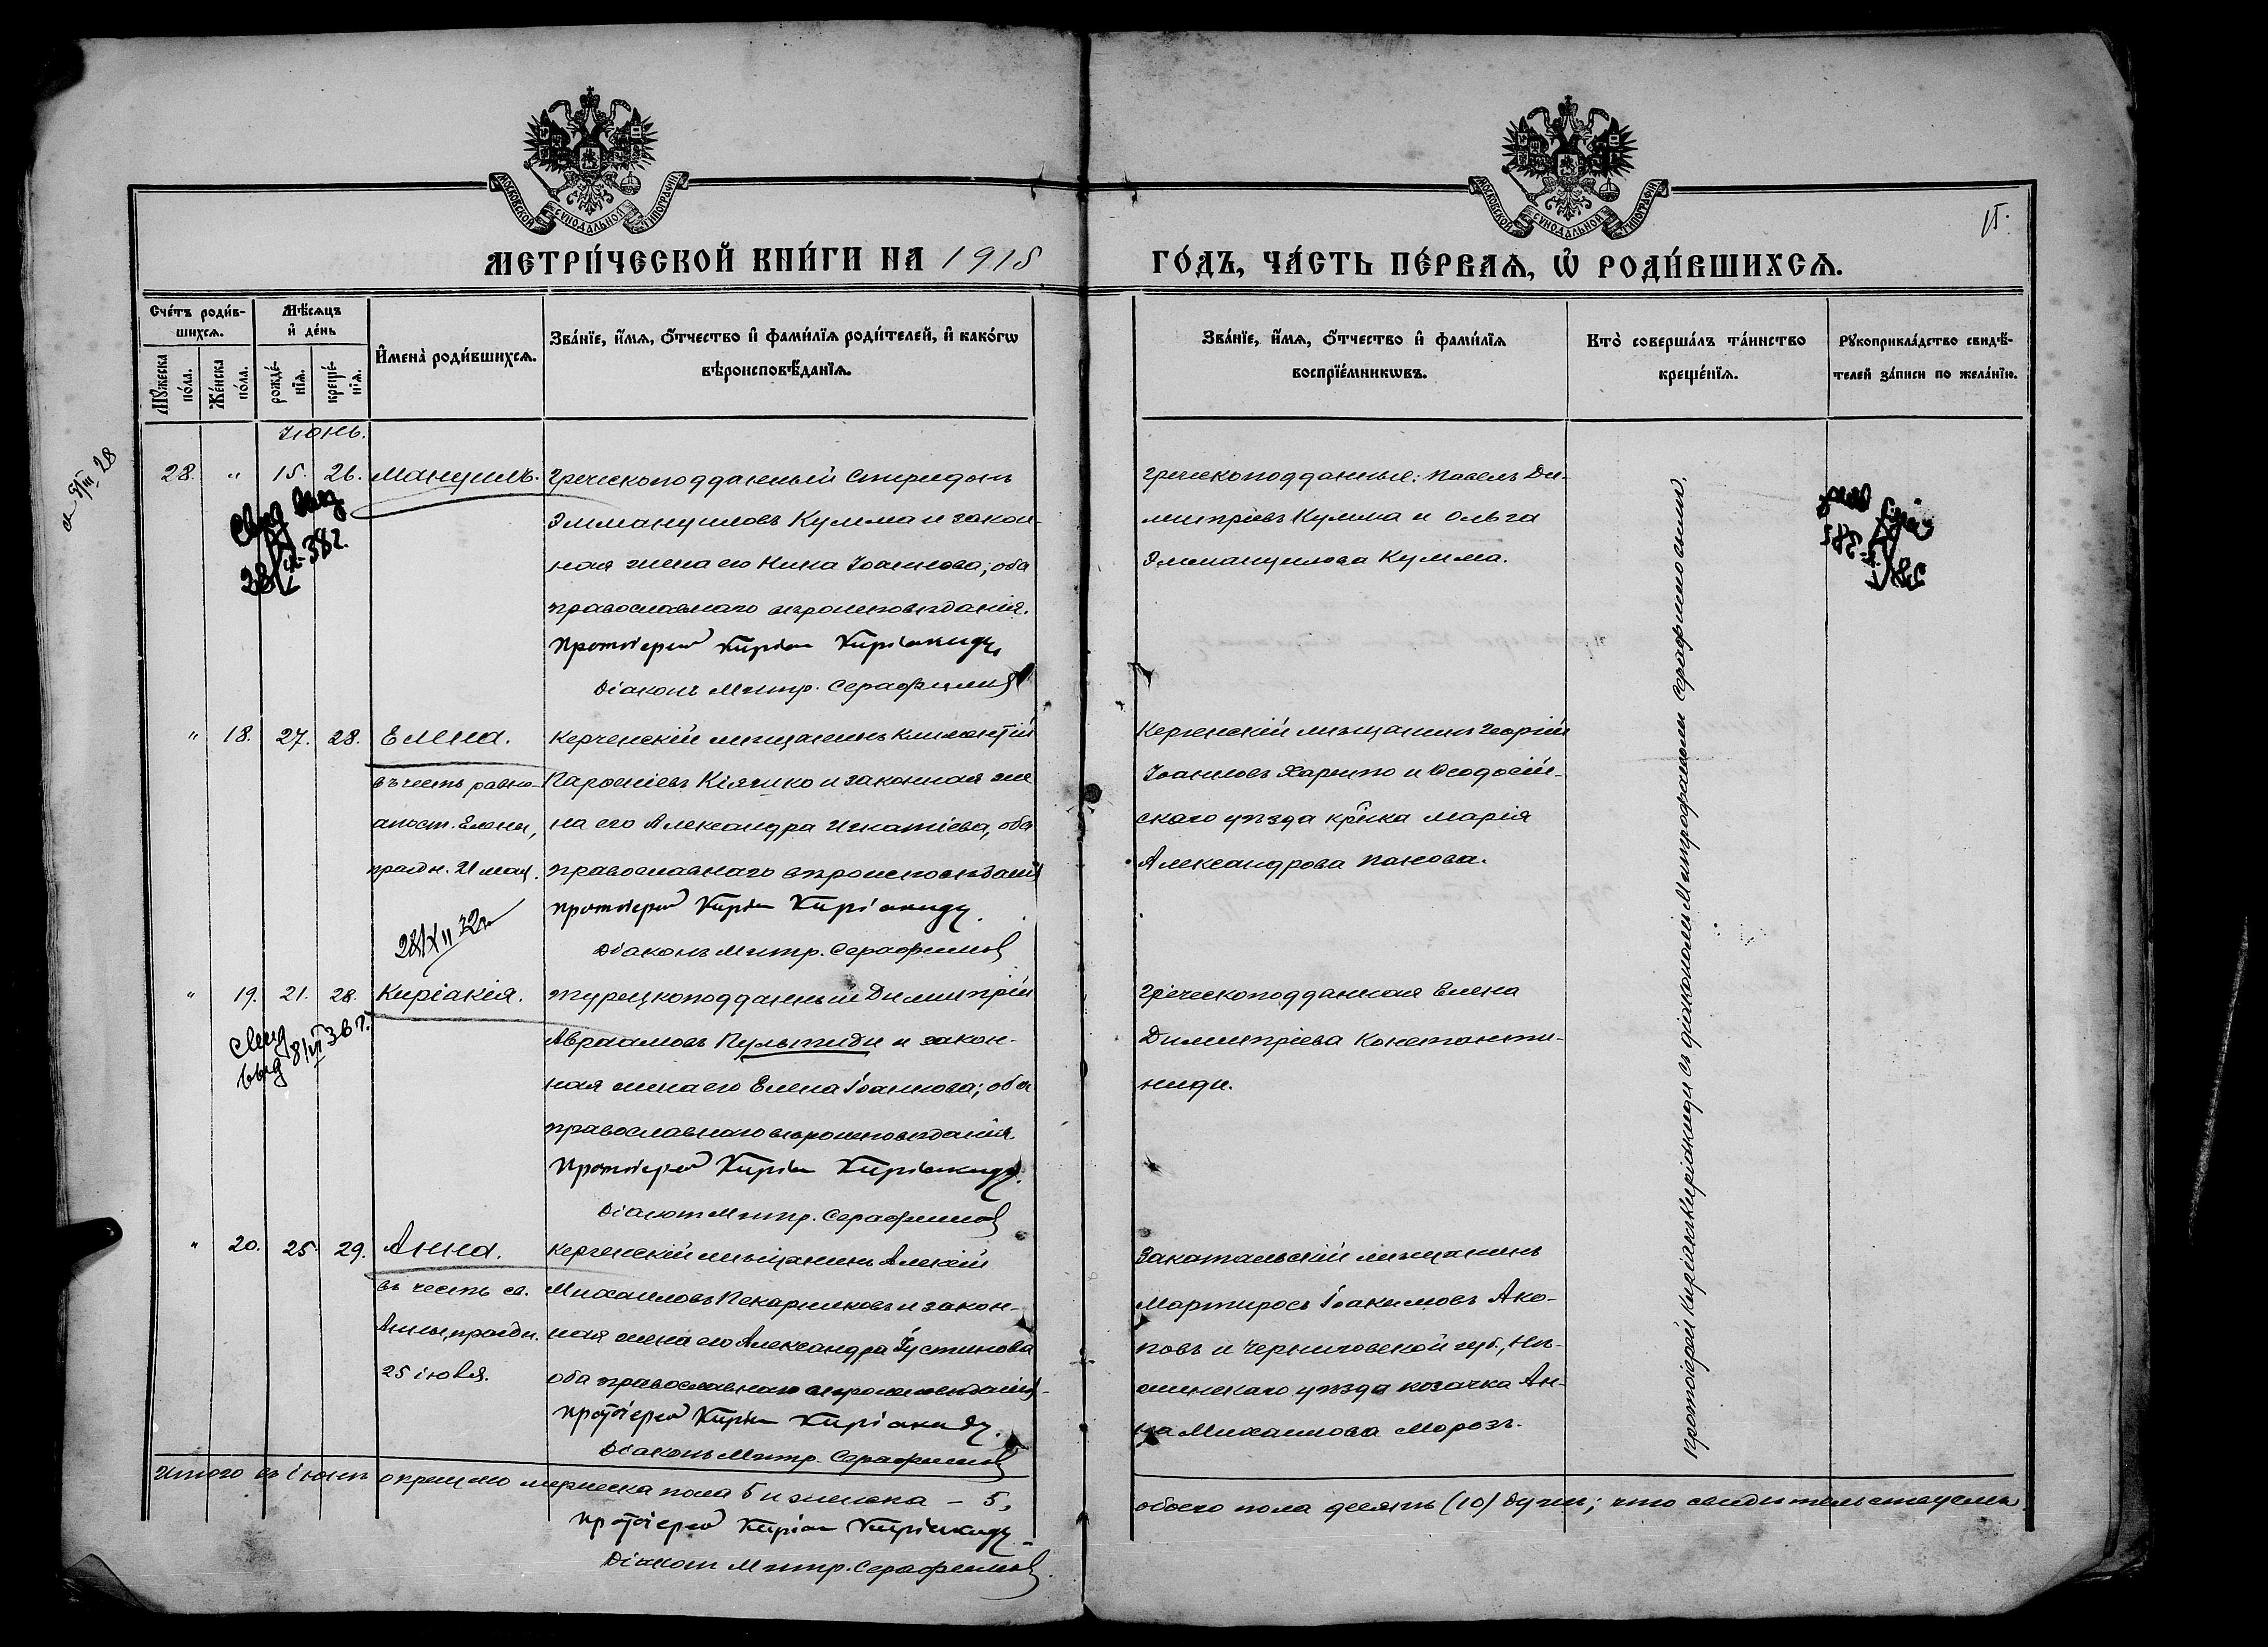 МОСКОВСКОЙ СУНОДАЛЬНОЙ ТИПОГРАФІИ
МОСКОВСКОЙ СУНОДАЛЬНОЙ ТИПОГРАФІИ
15.
МЕТРИ́ЧЕСКОЙ КНИ́ГИ НА 1915
ГО́ДЪ, ЧА́СТЬ ПЕ́РВАѦ, Ѡ҆ РОДИ́ВШИХСѦ.
Сче́тъ роди́в-
шихсѧ.
Мꙋ́жеска
по́ла.
Же́нска
по́ла.
Мѣ́сѧцъ
и҆ де́нь
рожде́-
нїѧ.
креще́-
нїѧ.
И҆мена̀ роди́вшихсѧ.
Зва́нїе, и҆́мѧ, ѻ҆́тчество и҆ фами́лїѧ роди́телей, и҆ како́гѡ
вѣроисповѣ́данїѧ.
Зва́нїе, и҆́мѧ, ѻ҆́тчество и҆ фами́лїѧ
воспрїе́мникѡвъ.
Кто̀ соверша́лъ та́инство
креще́нїѧ.
Рꙋкоприкла́дство свидѣ́-
телей за́писи по жела́нїю.
Іюнь.
28. " 15. 26. Мануилъ.
Греческоподданный Спиридонъ
Эммануиловъ Кулма и закон-
ная жена его Нина Іоаннова; оба
православнаго вѣроисповѣданія.
Протоіерей Киріакъ Киріакиди
Діаконъ Митр. Серафимовъ
Греческоподданные: Павелъ Ди-
митріевъ Кулма и Ольга
Эммануилова Кулма.
" 18. 27. 28. Елена.
въ честь равно-
апост. Елены,
праздн. 21 мая.
Керченскій мѣщанинъ Климентій
Парѳеніевъ Кіяшко и законная же
на его Александра Игнатіева, оба
православнаго вѣроисповѣданія
Протоіерей Киріакъ Киріакиди.
Діаконъ Митр. Серафимовъ
Керченскій мѣщанинъ Георгій
Іоанновъ Харито и Ѳеодосій-
скаго уѣзда кр-ка Марія
Александрова Панова.
" 19. 21. 28. Киріакія.
Турецкоподданный Димитрій
Авраамовъ Пульпиди и закон-
ная жена его Елена Іоаннова; оба
православнаго вѣроисповѣданія.
Протоіерей Киріакъ Киріакиди.
Діаконъ Митр. Серафимовъ
Греческоподданная Елена
Димитріева Константи-
ниди.
" 20. 25. 29. Анна.
въ честь св.
Анны, праздн.
25 іюля.
Керченскій мѣщанинъ Алексій
Михаиловъ Пекарниковъ и закон-
ная жена его Александра Іустинова
оба православнаго вѣроисповѣданія.
Протоіерей Киріакъ Киріакиди.
Діаконъ Митр. Серафимовъ
Закатальскій мѣщанинъ
Мартиросъ Іоакимовъ Ако-
повъ и Черниговской губ., Нѣ-
жинскаго уѣзда козачка Ан-
на Михаилова Морозъ.
Протоіерей Киріакъ Киріакиди съ діакономъ Митрофаномъ Серафимовымъ.
Итого въ іюнѣ окрещено мужеска пола 5 и женска – 5,
обоего пола десять (10) душъ; что свидѣтельствуемъ
Протоіерей Киріакъ Киріакиди
Діаконъ Митр. Серафимовъ